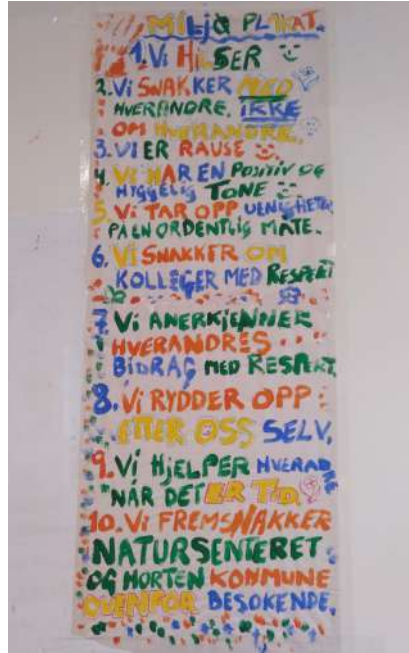 MILJØ PLAKAT.
1. Vi HILSER
2. Vi SNAKKER MED
HVERANDRE, IKKE
OM HVERANDRE.
3. VI ER RAUSE
4. Vi HAR EN POSITIV OG
HYGGELIG TONE
5. Vi TAR OPP UENIGHETER
PÅ EN ORDENTLIG MÅTE.
6. Vi SNAKKER OM
KOLLEGER MED RESPEKT
7. Vi ANERKJENNER
HVERANDRES
BIDRAG MED RESPEKT.
8. Vi RYDDER OPP
ETTER OSS SELV.
9. Vi HJELPER HVERANDRE
NÅR DET ER TID
10. Vi FREMSNAKKER
NATURSENTERET
OG HORTEN KOMMUNE
OVENFOR BESØKENDE.